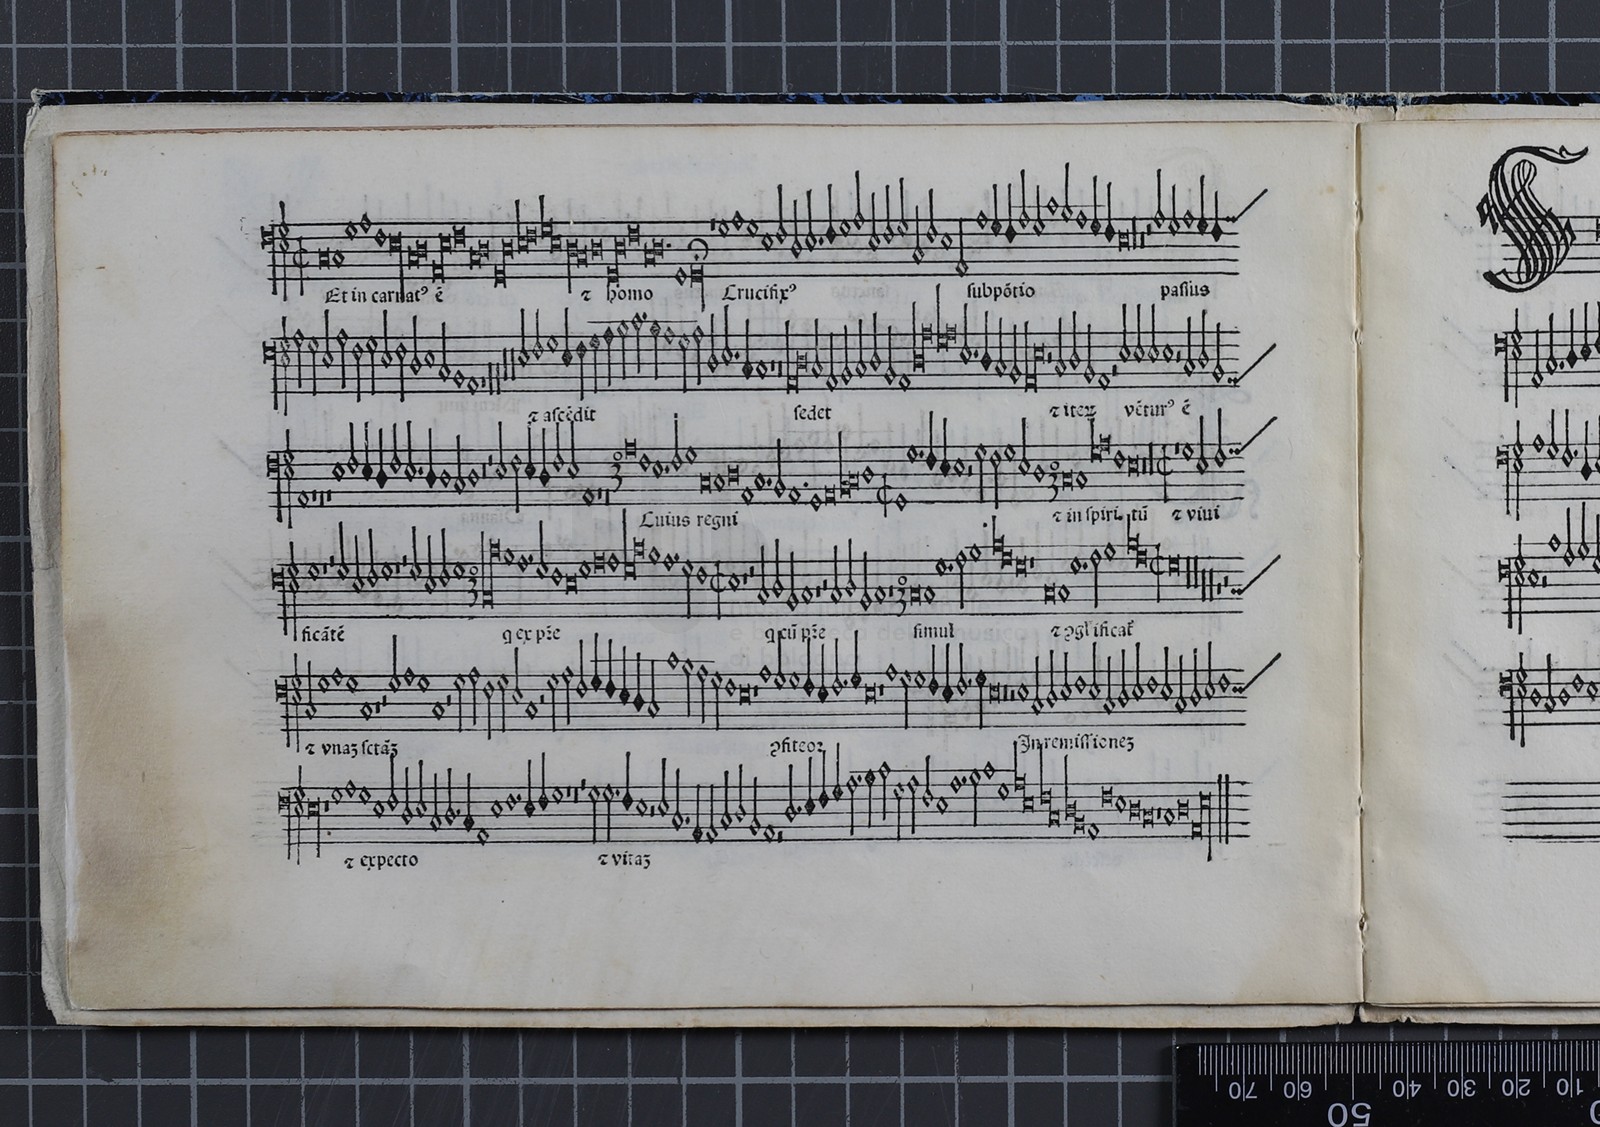 Et in carnatꝰ ē ⁊ homo Crucifixꝰ subpōtio passus
⁊ ascēdit sedet ⁊ iteꝝ vētur⁹ ē
Cuius regni ⁊ in spiri tū ⁊ viui
ficātē q ex pr̄e q cū pr̄e simul ⁊ ꝯgl ificat
⁊ vnaȝ sctāȝ ꝯfiteoꝛ In remissioneȝ
⁊ expecto ⁊ vitaȝ
70 60 50 40 30 20 10